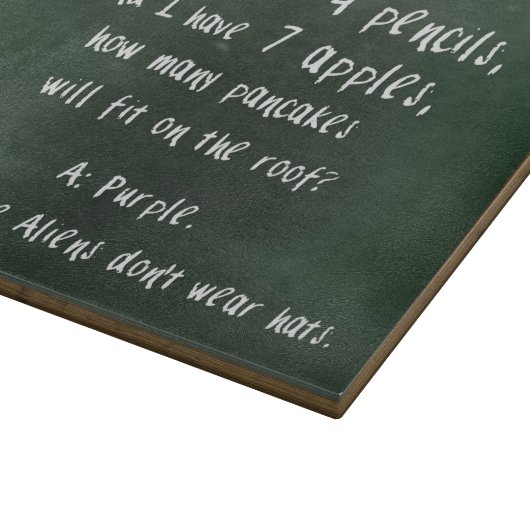 pencils,
I have 7 apples,
how many pancakes
will fit on the roof?
A: Purple.
Aliens don't wear hats.